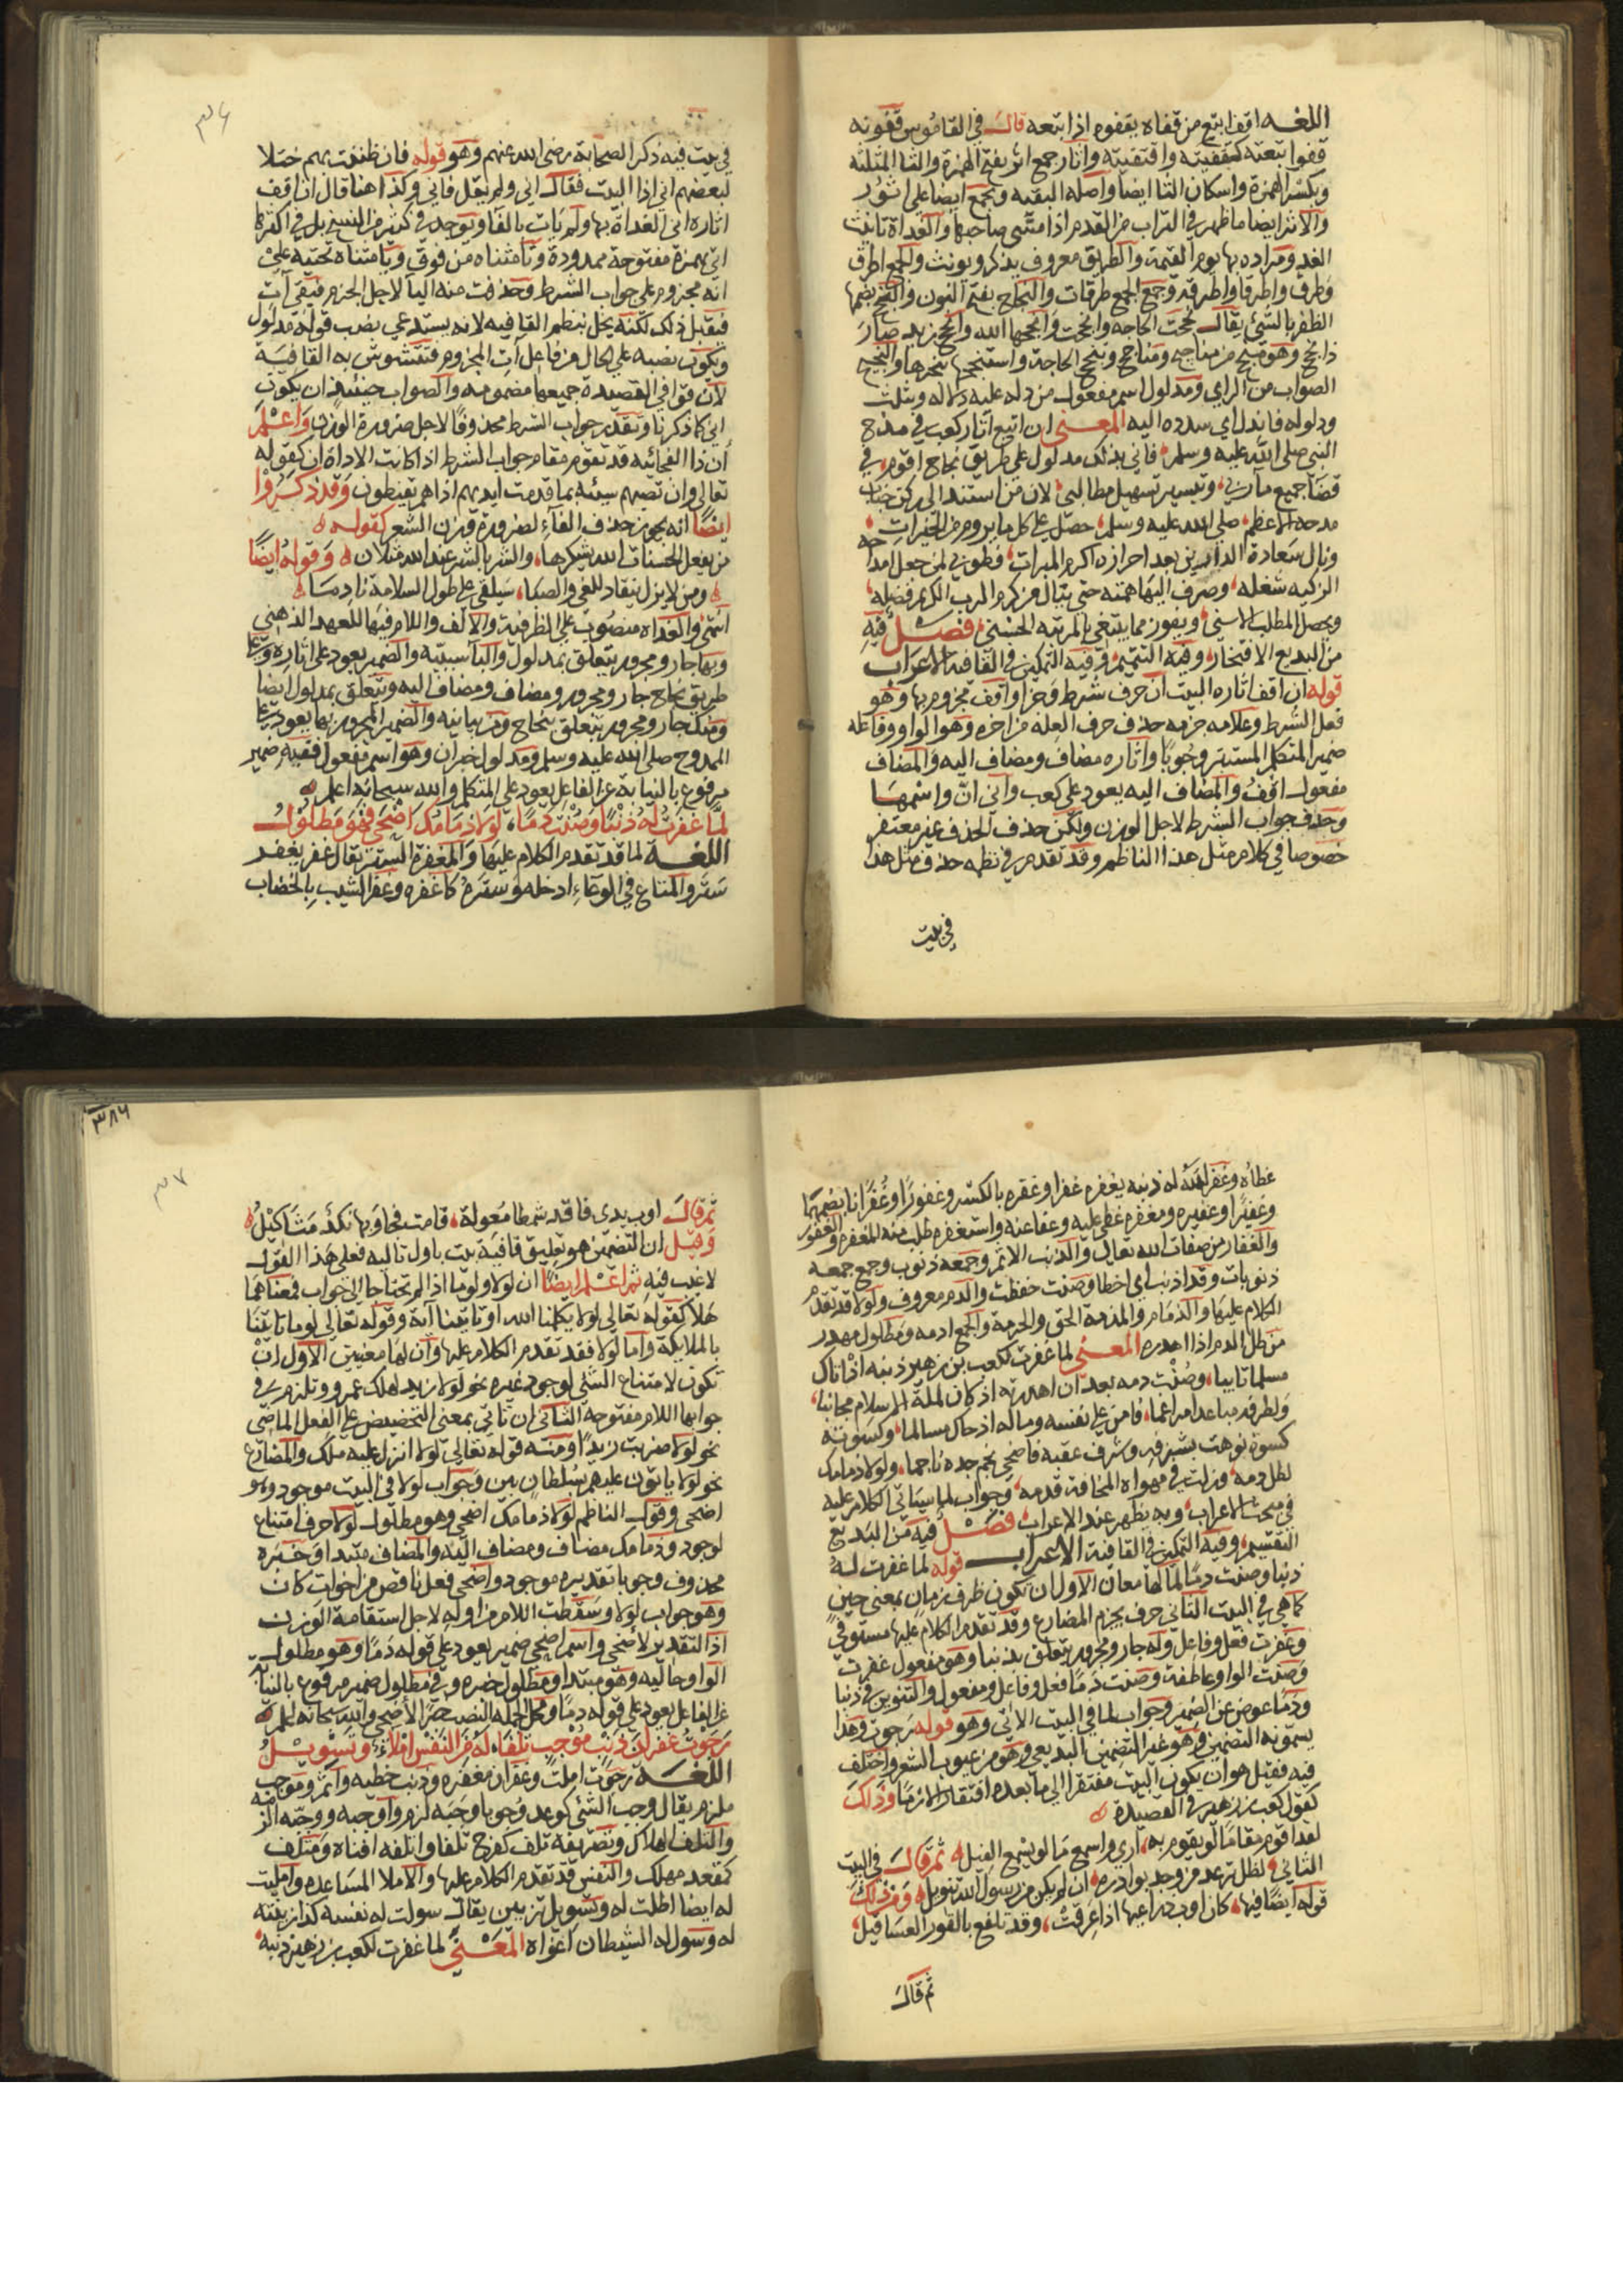 اللغه اقف اتبع من قفاه يقفوه اذا تبعه قال في القاموس قفوته
قفوا تبعته كتقفيته واقتفيته واثار جمع اثر بفتح الهمزة والثا المثلثه
وبكسر الهمزة واسكان الثا ايضا واصله البقيه ويجمع ايضا على اثور
والاثر ايضا ما ظهر في التراب من القدم اذا مشى صاحبها والغداة تانيث
الغد ومراده بها يوم القيمة والطريق معروف يذكر ويونث والجمع اطرق
وطرق واطرقا واطرقه وجمع الجمع طرقات والنجاح بفتح النون والنجح بضمها
الظفر بالشئ يقال نجحت الحاجه وانجحت وانجحها الله وانجح زيد صار
ذا نجح وهو منجح من مناجيح ومناجح وتنجح الحاجة واستنجحها تنجزها والنجيح
الصواب من الراي ومدلول اسم مفعول من دله عليه دلاله ويثلث
ودلوله فاندل اي سدده اليه المعنى ان اتبع اثار كعب في مدح
النبي صلى الله عليه وسلم فاني بذلك مدلول على طريق نجاح اقوم في
قضا جميع مآربي، وتيسير تسهيل مطالبي لان من استند الى ركن جناب
مدحه الاعظم صلى الله عليه وسلم، حصل على كل ما يروم من الخيرات
ونال سعادة الدارين بعد احرازه اكرم المبرات، فطوبى لمن جعل امداحه
الزكيه شغله، وصرف اليها همته حتى ينال من كرم الرب الكريم فضله
ويحصل المطلب الاسنى، ويفوز بما يبتغي بالمرتبه الحسنى فصل فيه
من البديع الافتخار، وفيه التتميم، وفيه التمكين في القافيه الاعراب
قوله ان اقف اثاره البيت ان حرف شرط وجزا واقف مجزوم بها وهو
فعل الشرط وعلامه جزمه حذف حرف العله من اخره وهو الواو وفاعله
ضمير المتكلم المستتر وجوبا واثاره مضاف ومضاف اليه والمضاف
مفعول اقف والمضاف اليه يعود على كعب واني ان واسمها
وحذف جواب الشرط لاجل الوزن ولكن حذف الحذف غير مغتفر
خصوصا في كلام مثل هذا الناظم وقد تقدم في نظمه حذف مثل هذا
في بيت
٣٦
في بيت فيه ذكر الصحابة رضي الله عنهم وهو قوله فان ظننت بهم ختلا
لبعضهم اني اذا البيت فقال اني ولم يقل فاني وكذا هنا قال ان اقف
اثاره اني الغداة بها ولم يات بالفا ويوجد في كثير من النسخ بل في اكثرها
اتي بهمزة مفتوحة ممدودة وتا مثناه من فوق ويا مثناه تحتيه على
انه مجزوم على جواب الشرط وحذفت منه اليا لاجل الجزم فبقي آت
فيقبل ذلك لكنه يخل بنظم القافيه لانه يستدعي نصب قوله مدلول
ويكون نصبه على الحال من فاعل آت المجزوم فتتشوش به القافية
لان قوافي القصيدة جميعها مضمومه والصواب حينئذ ان يكون
اني كما ذكرنا وتقدر جواب الشرط محذوفا لاجل ضرورة الوزن واعلم
أن اذا الفجائيه قد تقوم مقام جواب الشرط اذا كانت الاداة ان كقوله
تعالى وان تصبهم سيئه بما قدمت ايديهم اذا هم يقنطون وقد ذكروا
ايضا انه يجوز حذف الفآء لضرورة وزن الشعر كقوله
من يفعل الحسنات الله يشكرها، والشر بالشر عند الله مثلان وقوله ايضا
ومن لا يزل ينقاد للغي والصبا، سيلفى على طول السلامة نادما
انتهى والغداه منصوب على الظرفيه والالف واللام فيها للعهد الذهني
وبها جار ومجرور يتعلق بمدلول والبا سببيه والضمير يعود على اثاره وعلى
طريق نجاح جار ومجرور ومضاف ومضاف اليه ويتعلق بمدلول ايضا
ومنك جار ومجرور يتعلق بنجاح ومن بيانيه والضمير المجرور بها يعود على
الممدوح صلى الله عليه وسلم ومدلول خبر ان وهو اسم مفعول ففيه ضمير
مرفوع بالنيابة عن الفاعل يعود على المتكلم والله سبحانه اعلم
لما غفرت له ذنبا وصنت دما، لولا ذمامك اضحى فهو مطلول
اللغة لما قد تقدم الكلام عليها والمغفرة الستر يقال غفر يغفر
ستر والمتاع في الوعآء ادخله وستره كاغفره وغفر الشيب بالخضاب
غطاه وغفر الله له ذنبه يغفره غفرا وغفره بالكسر وغفورا وغفرانا بضمهما
وغفيرا وغفيره ومغفره غطى عليه وعفا عنه واستغفره طلب منه المغفره والغفور
والغفار من صفات الله تعالى والذنب الاثم وجمعه ذنوب وجمع جمعه
ذنوبات وقد اذنب اي اخطا وصنت حفظت والدم معروف ولولا قد تقدم
الكلام عليها والذمام والمذمة الحق والحرمة والجمع اذمه ومطلول مهدر
من طل الدم اذا اهدره المعنى لما غفرت لكعب بن زهير ذنبه اذ اتاك
مسلما تايبا، وصنت دمه بعد ان اهدرته اذ كان لملة الاسلام مجانبا،
ولطرقه مباعدا مراغما، فامن على نفسه وماله اذ حاك مسالما، وكسوته
كسوة نوهت بشرفه وشرف عقبه فاضحى نجم جده ناجما، ولولا ذمامك
لطل دمه، وزلت في مهواه المخافة قدمه، وجواب لما سياتي الكلام عليه
في مبحث الاعراب، وبه يظهر عند الاعراب فصل فيه من البديع
التقسيم، وفيه التمكين في القافية الاعراب قوله لما غفرت له
ذنبا وصنت دما لما لها معان الاول ان تكون ظرف زمان بمعنى حين
كما هي في البيت الثاني حرف يجزم المضارع وقد تقدم الكلام عليها مستوفي
وغفرت فعل وفاعل وله جار ومجرور يتعلق بذنبا وهو مفعول غفرت
وصنت الواو عاطفة وصنت دما فعل وفاعل ومفعول والتنوين في ذنبا
ودما عوض عن الضمير وجواب لما في البيت الاتي وهو قوله رجوت وهذا
يسمونه التضمين وهو غير التضمين البديعي وهو من عيوب الشعر واختلف
فيه فقيل هو ان يكون البيت مفتقرا الى ما بعده افتقارا لازما وذلك
كقول كعب بن زهير في القصيدة
لقد اقوم مقاما لو يقوم به، ارى واسمع ما لو يسمع الفيل ثم قال في البيت
الثاني لظل ترعد من وجد بوادره، ان لم يكن من رسول الله تنويل ومن ذلك
قوله ايضا فيها، كان اوب ذراعيها اذا عرقت، وقد تلفع بالقور العساقيل،
ثم قال
٣٨٦
٣٧
ثم قال اوب يدي فاقد شمطا معولة، قامت فجاوبها نكد مثاكيل
وقيل ان التضمين هو تعليق قافية بيت باول تاليه فعلى هذا القول
لا عيب فيه ثم اعلم ايضا ان لولا ولوما اذا لم تحتاجا الى جواب فمعناهما
هلا كقوله تعالى لولا يكلمنا الله او تاتينا آية وقوله تعالى لوما تاتينا
بالملايكة واما لولا فقد تقدم الكلام عليها وان لها معنيين الاول ان
تكون لامتناع الشئ لوجود غيره نحو لولا زيد لهلك عمرو وتلزم في
جوابها اللام مفتوحة الثاني ان تاتي بمعنى التخصيص على الفعل الماضي
نحو لولا ضربت زيدا ومنه قوله تعالى لولا انزل عليه ملك والمضارع
نحو لولا ياتون عليهم بسلطان بين وجواب لولا في البيت موجود وهو
اضحى وقول الناظم لولا ذمامك اضحى وهو مطلول لولا حرف امتناع
لوجود وذمامك مضاف ومضاف اليه والمضاف مبتدا وخبره
محذوف وجوبا تقديره موجود واضحى فعل ناقص من اخوات كان
وهو جواب لولا وسقطت اللام من اوله لاجل استقامة الوزن
اذ التقدير لأضحى واسم اضحى ضمير يعود على قوله دما وهو مطلول
الواو حاليه وهو مبتدا ومطلول خبره وفي مطلول ضمير مرفوع بالنيابة
عن الفاعل يعود على قوله دما ومحل الجمله النصب خبرا لأضحى والله سبحانه اعلم
رجوت غفران ذنب موجب تلفا، له من النفس املاء وتسويل
اللغة رجوت املت وغفران مغفره وذنب خطيه واثم وموجب
ملزم يقال وجب الشئ كوعد وجوبا وجبة لزم واوجبه ووجبه الزمه
والتلف الهلاك وتصريفه تلف كفرح تلفا واتلفه افناه ومتلف
كمقعد مهلك والنفس قد تقدم الكلام عليها والاملا المساعده وامليت
له ايضا اطلت له وتسويل تزيين يقال سولت له نفسه كذا زينته
له وسول له الشيطان اغواه المعنى لما غفرت لكعب بن زهير ذنبه